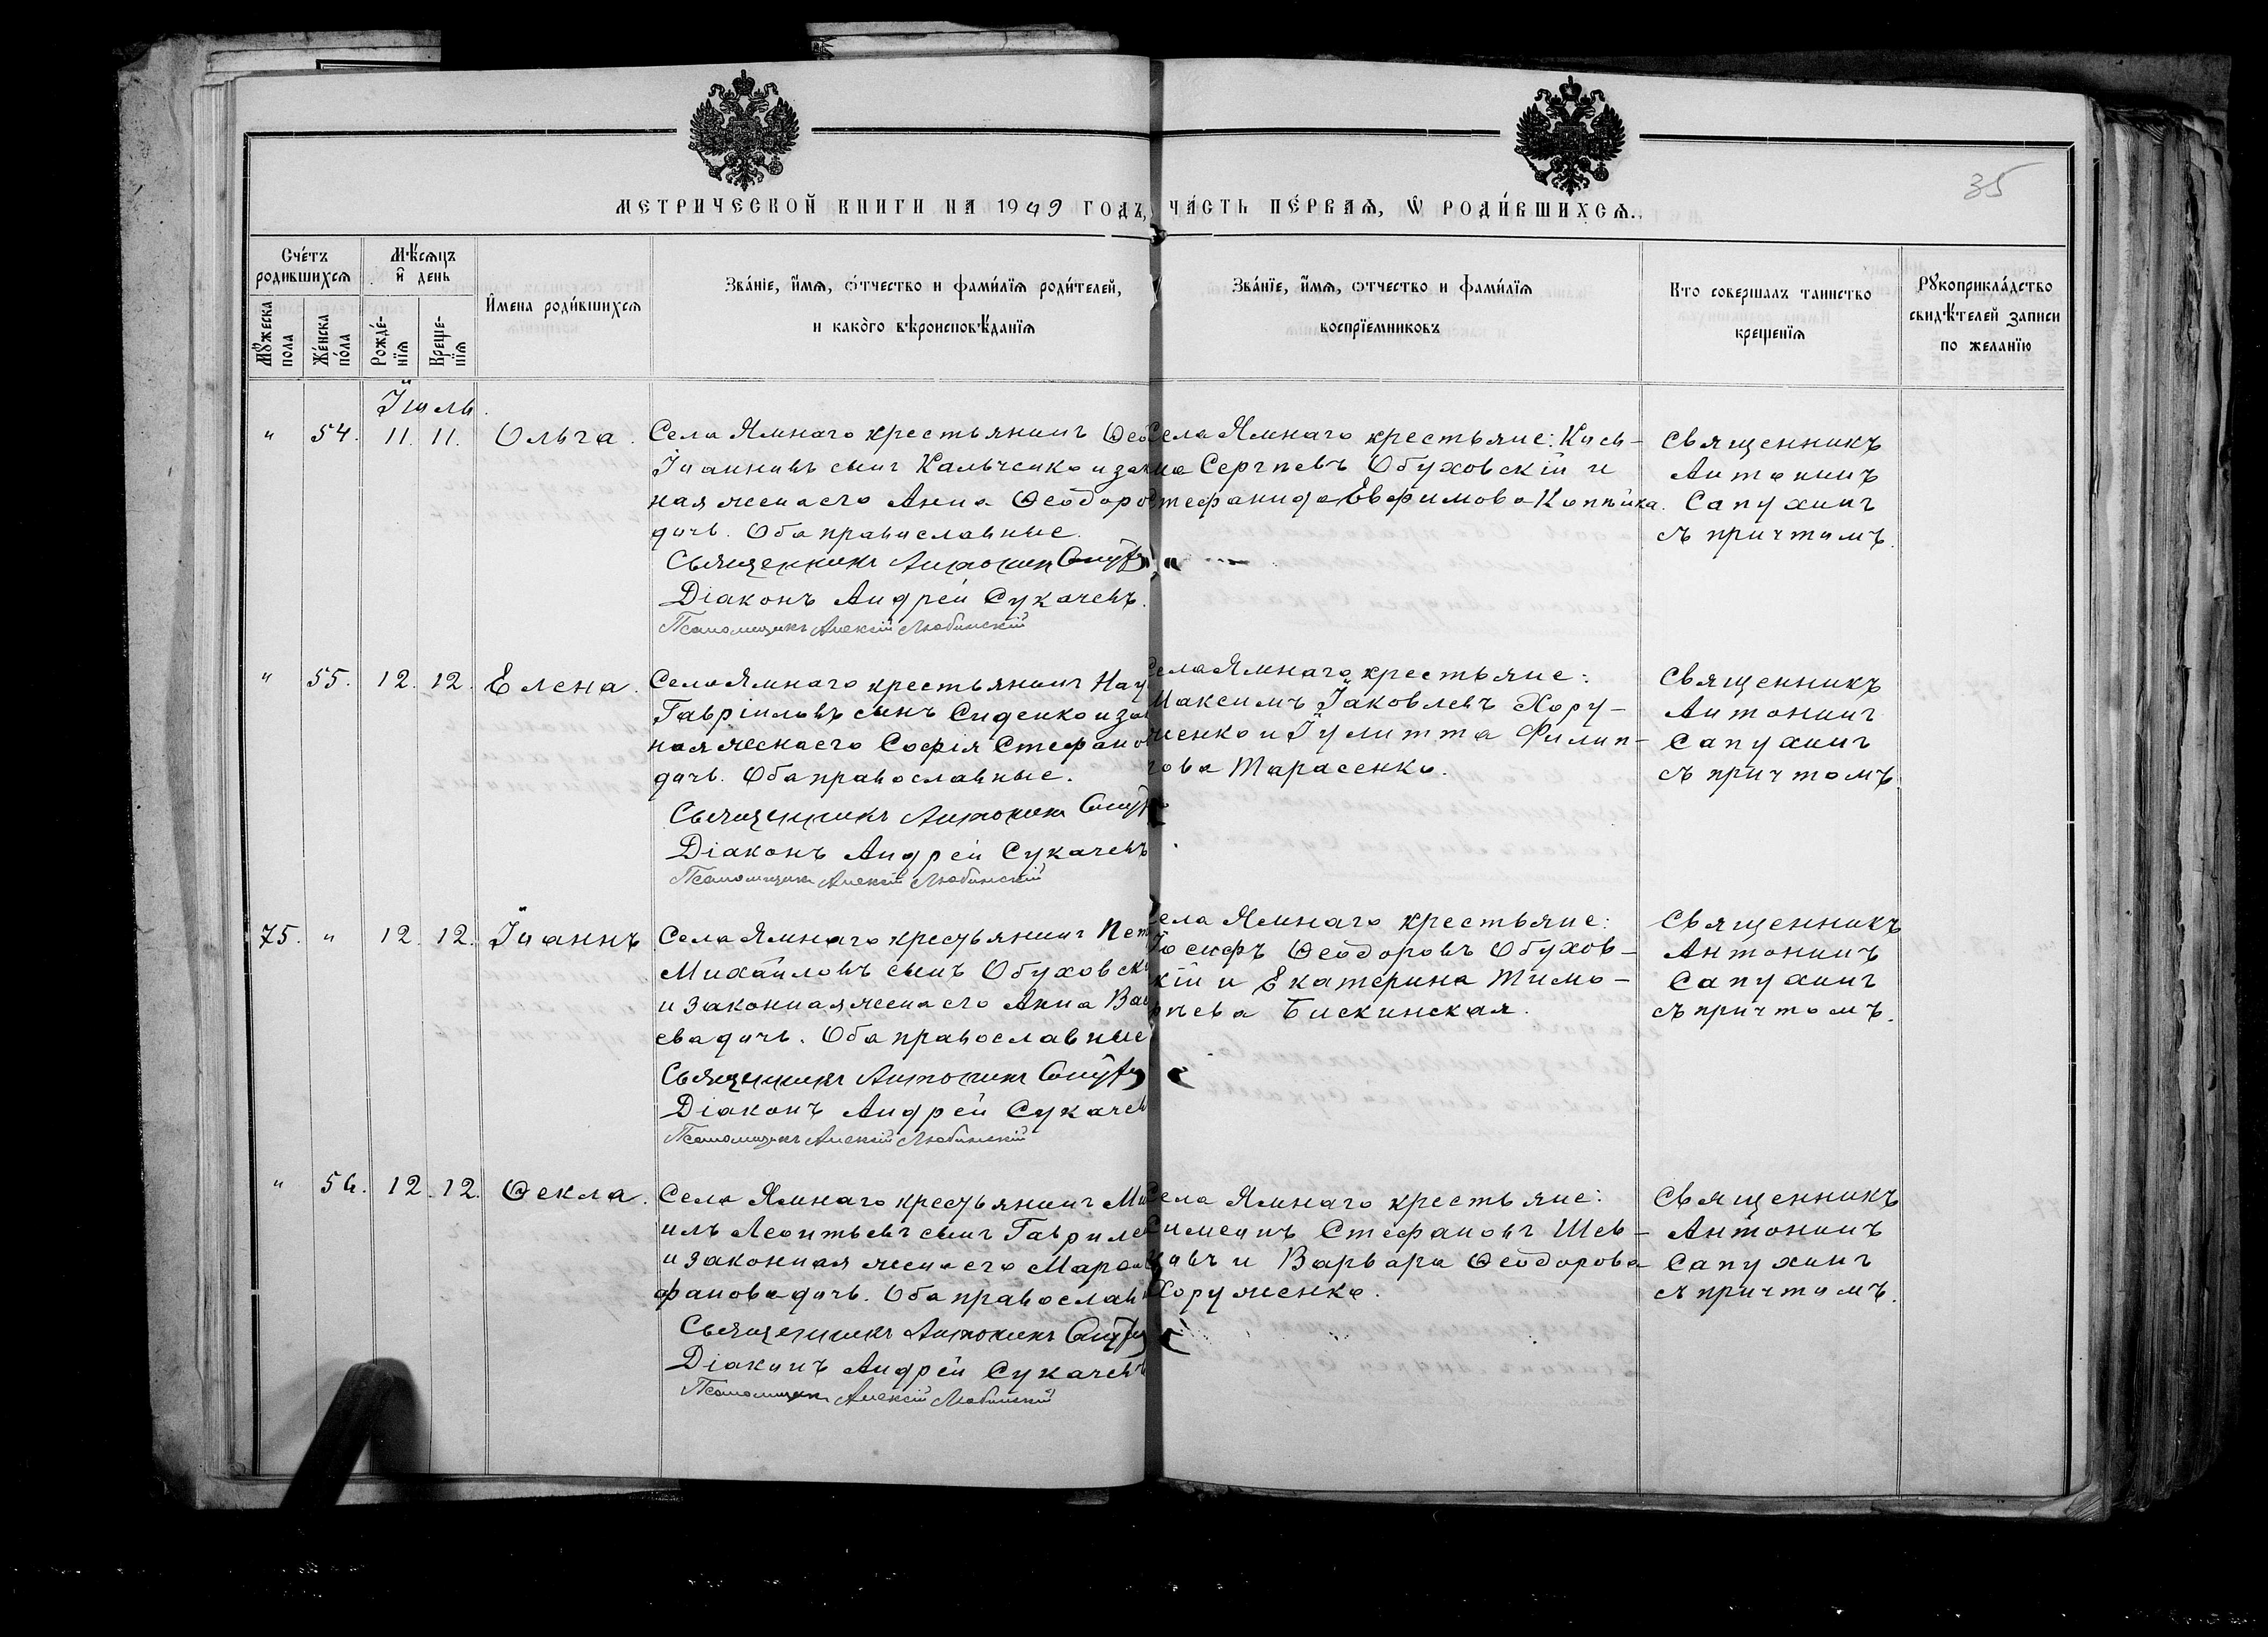 35
МЕТРИЧЕСКОЙ КНИГИ НА 1909 ГОДЪ, ЧА́СТЬ ПЕ́РВАѦ, Ѡ РОДИ́ВШИХСѦ.
Сче́тъ родившихсѧ
Мꙋ́жеска пола
Же́нска по́ла
Мѣ́сѧцъ и҆ день
Рожде́-нїѧ
Креще-нїѧ
И҆мена роди́вшихсѧ
Зва́нїе, и҆́мѧ, ѻ҆́тчество и фами́лїѧ роди́телей,
и како́го вѣроисповѣ́данїѧ
Зва́нїе, и҆́мѧ, ѻтчество и фами́лїѧ
воспрїемниковъ
Кто совершалъ таинство
крещенїѧ
Рꙋкоприкла́дство
свидѣ́телей записи
по желанїю
Іюль.
" 54. 11. 11. Ольга.
Села Ямнаго крестьянинъ Ѳео
Іоанновъ сынъ Кальченко и зак
ная жена его Анна Ѳеодоро
дочь. Оба православные.
Священникъ Антонин
Діаконъ Андрей Сукачевъ.
Псаломщикъ Алексій Любинскій
Села Ямнаго крестьяне: Кось-
ма Сергѣевъ Обуховскій и
Стефанида Евфимова Коппика.
Священникъ
Антонинъ
Сапухинъ
съ причтомъ.
" 55. 12. 12. Елена.
Села Ямнаго крестьянинъ Нау
Гавріиловъ сынъ Сиденко и зак
ная жена его Софія Стефанов
дочь. Оба православные.
Священникъ Антонин
Діаконъ Андрей Сукачевъ
Псаломщикъ Алексій Любинскій
Села Ямнаго крестьяне:
Максимъ Іаковлевъ Хору-
женко и Іулитта Филип-
пова Тарасенко.
Священникъ
Антонинъ
Сапухинъ
съ причтомъ.
75. " 12. 12. Іоаннъ
Села Ямнаго крестьянинъ Пет
Михаиловъ сынъ Обуховск
и законная жена его Анна Ва
ева дочь. Оба православные
Священникъ Антонинъ
Діаконъ Андрей Сукачев
Псаломщикъ Алексій Любинскій
Села Ямнаго крестьяне:
Іосифъ Ѳеодоровъ Обухов-
скій и Екатерина Тимо-
ѳеева Бискинская.
Священникъ
Антонинъ
Сапухинъ
съ причтомъ.
" 56. 12. 12. Ѳекла.
Села Ямнаго крестьянинъ Ми
илъ Леонтьевъ сынъ Гаврилен
и законная жена его
фанова дочь. Оба православн
Священникъ Антонинъ
Діаконъ Андрей Сукачевъ
Псаломщикъ Алексій Любинскій
Села Ямнаго крестьяне:
Симеонъ Стефановъ Шев-
цовъ и Варвара Ѳеодорова
Хоруженко.
Священникъ
Антонинъ
Сапухинъ
съ причтомъ.